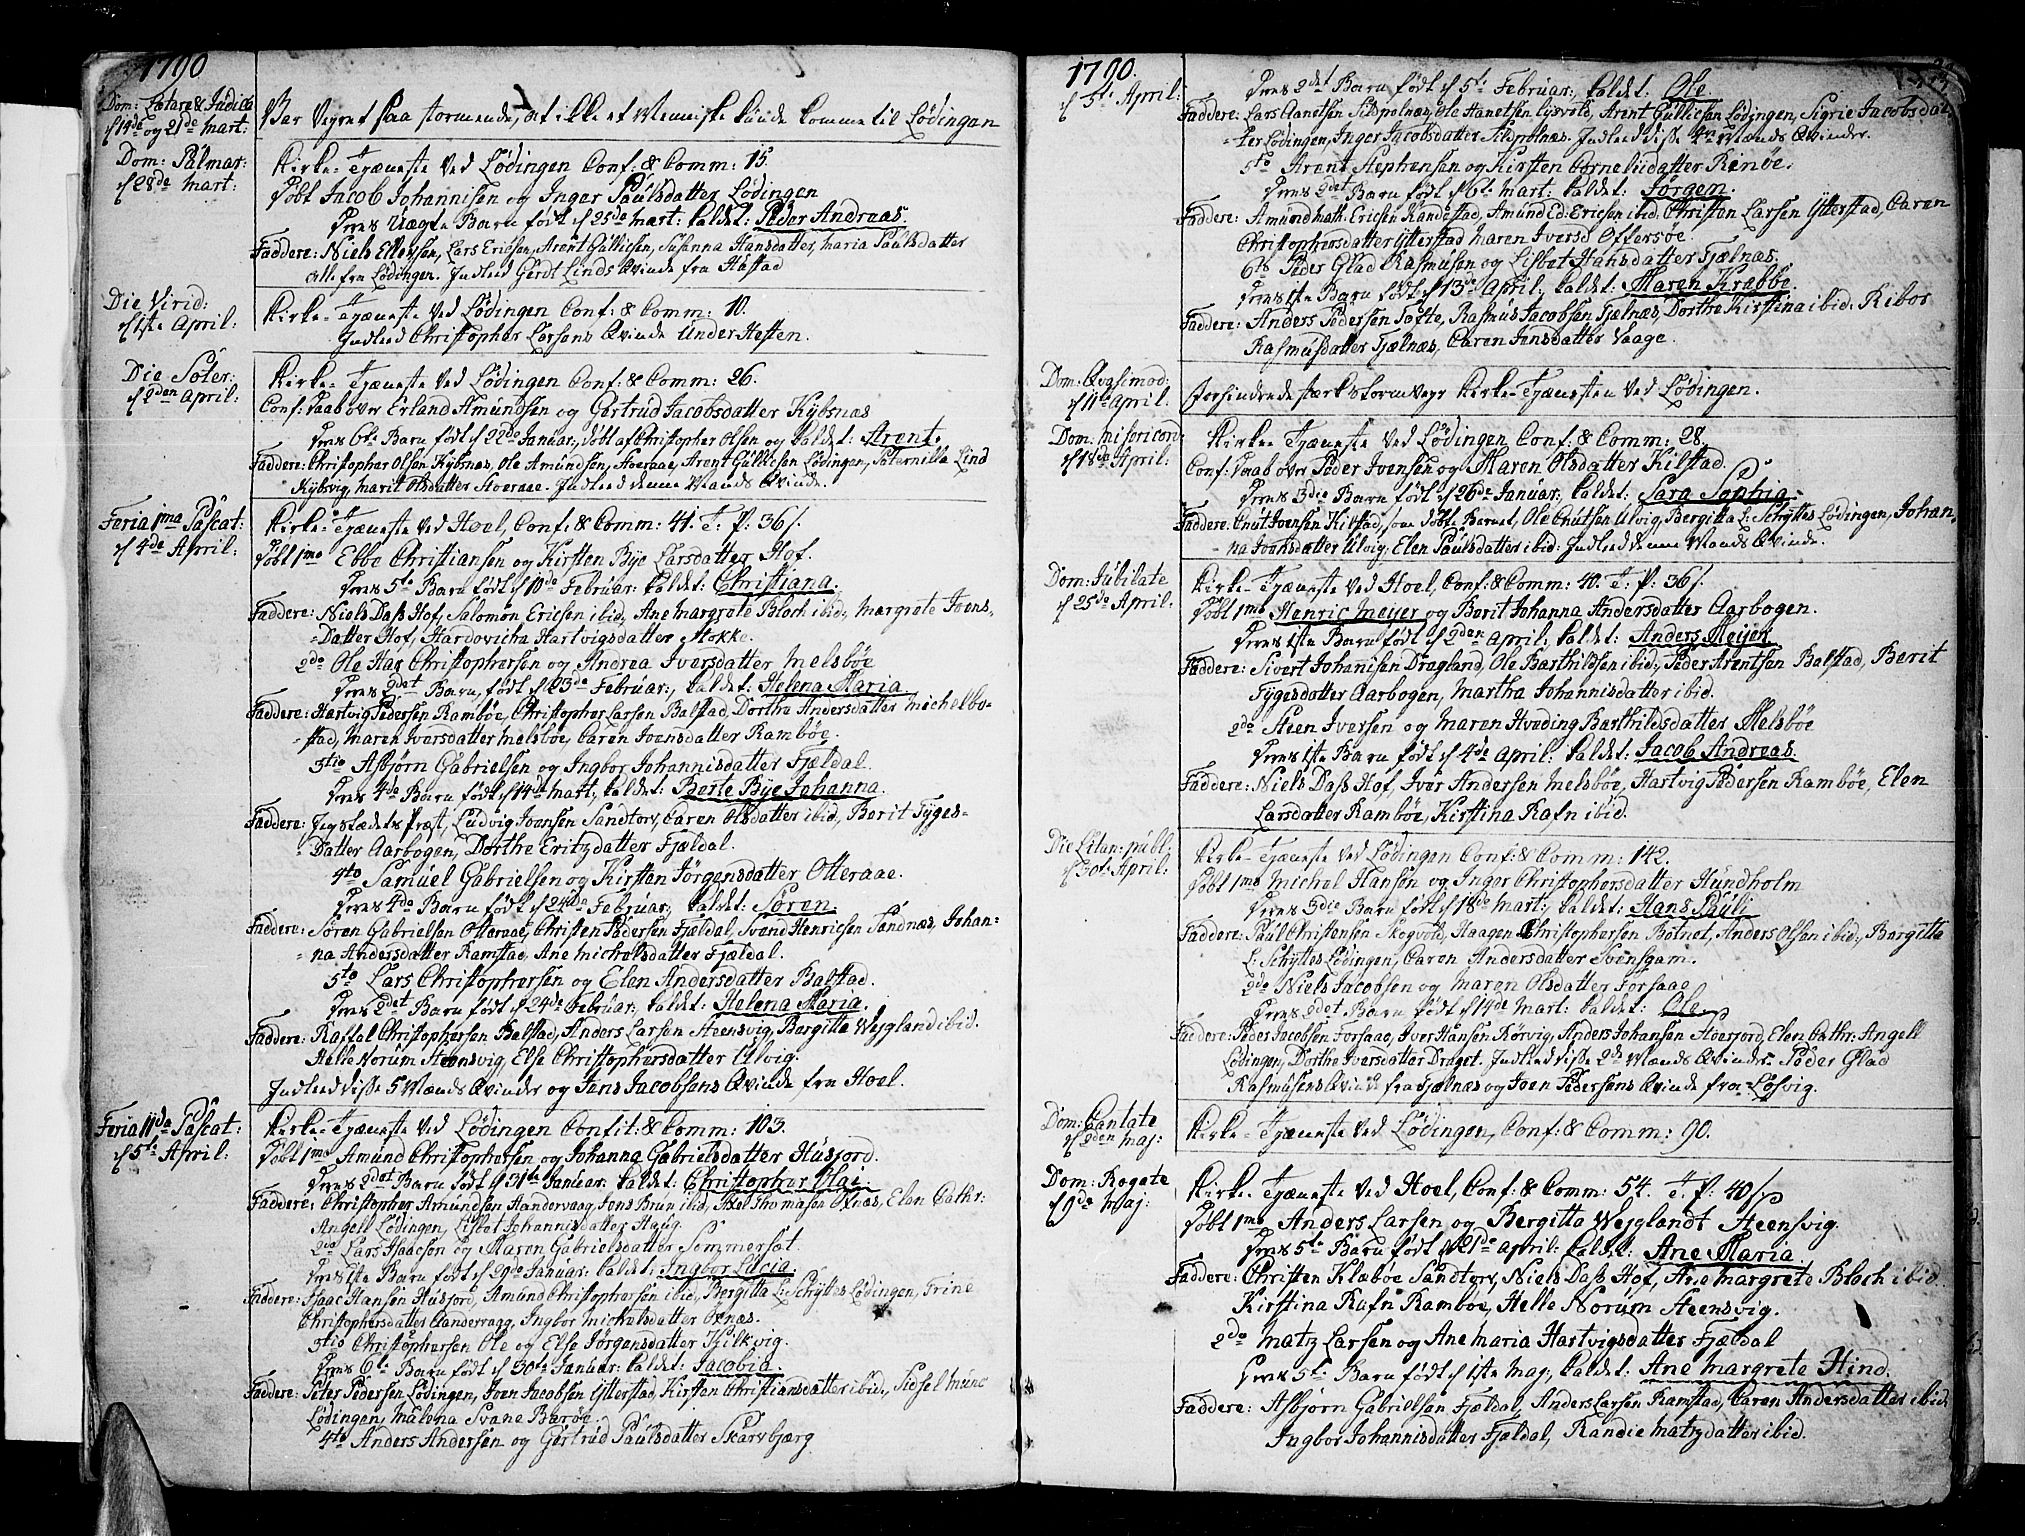 1790
Dom: Lætare & Judica
d 14de og 21de Mart:
Var Veyret saa stormende, at ikke et Menniske kunde komme til Lødingen
Dom: Palmar:
d 28de Mart:
Kirke-Tjæneste ved Lødingen Conf: & Comm: 15.
Døbt Jacob Johannisen og Inger Paulsdatter Lødingen
Deres Uægte Barn født d 25de Mart: kaldet: Peder Andreas.
Faddere: Niels Ellevsen, Lars Ericsen, Arent Gullicsen, Susanna Hansdatter, Maria Paulsdatter
alle fra Lødingen. Indleed Gerdt Linds Qvinde fra Haftad
Die Virid:
d 1ste April:
Kirke-Tjæneste ved Lødingen Conf: & Comm: 10.
Indleed Christopher Larsens Qvinde Under Heften.
Die Soter:
d 2den April:
Kirke-Tjæneste ved Lødingen Conf: & Comm: 26.
Conf: Daab over Erland Amundsen og Gertrud Jacobsdatter Kybsnæs
Deres 6te Barn født d 22de Januar:, døbt af Christopher Olsen og kaldet: Arent.
Faddere: Christopher Olsen Kybsnæs, Ole Amundsen, Storaae, Arent Gullicsen Lødingen, Peternilla Lind
Kybsvig, Marit Olsdatter Storaae. Indleed denne Mands Qvinde.
Feria 1ma Pascat:
d 4de April:
Kirke-Tjæneste ved Hoel, Conf: & Comm: 41. T: P: 36 s.
Døbt 1mo Ebbe Christiansen og Kirsten Bye Larsdatter Hof.
Deres 5te Barn født d 10de Februar: kaldet: Christiana.
Faddere: Niels Dass Hof, Salomon Ericsen ibid:, Ane Margrete Bloch ibid:, Margrete Joens-
-Datter Hof, Hardovicha Hartvigsdatter Stokke.
2do Ole Har Christophersen og Andrea Iversdatter Melsbøe
Deres 2det Barn, født d 23de Februar:, kaldet: Helena Maria.
Faddere: Hartvig Pedersen Rambøe, Christopher Larsen Balstad, Dorthe Andersdatter Michelbo-
-stad, Maren Iversdatter Melsbøe, Caren Joensdatter Rambøe.
3tio Asbjørn Gabrielsen og Ingbor Johannisdatter Fjældal.
Deres 4de Barn født d 14de Mart:, kaldet: Berte Bye Johanna.
Faddere: Jeg Stædets Præst, Ludvig Joensen Sandtorv, Caren Olsdatter ibid:, Berit Tyges-
-Datter Aarbogen, Dorthe Eritzdatter Fjældal.
4to Samuel Gabrielsen og Kirsten Jørgensdatter Otteraae.
Deres 4de Barn født d 24de Februar:, kaldet: Søren.
Faddere: Søren Gabrielsen Otteraae, Christen Pedersen Fjældal, Svend Henricsen Sandnæs, Johan-
-na Andersdatter Ramstad, Ane Michelsdatter Fjældal.
5to Lars Christophersen og Elen Andersdatter Balstad.
Deres 2det Barn født d 24de Februar:, kaldet: Helena Maria.
Faddere: Raftal Christophersen Balstad, Anders Larsen Steensvig, Bergitta Wejgland ibid.
Helle Norum Steensvig, Else Christophersdatter Ulvig.
Indleed disse 5 Mænds Qvinder og Jens Jacobsens Qvinde fra Hoel.
Feria 11da Pascat:
d 5te April:
Kirke-Tjæneste ved Lødingen Confit: & Comm: 103.
Døbt 1mo Amund Christophersen og Johanna Gabrielsdatter Husjord.
Deres 2det Barn født d 31te Januar: kaldet: Christopher Olai.
Faddere: Christopher Amundsen Handervaag, Jens Brun ibid, Axel Thomasen Oxnæs, Elen Cathr:
Angell Lødingen, Lisbet Johannisdatter Haug.
2do Lars Isaacsen og Maren Gabrielsdatter Sommersæt.
Deres 1ste Barn født d 29de Januar: kaldet: Ingbor Lucia.
Faddere: Isaac Hansen Husjord, Amund Christophersen ibid, Bergitta L: Schyttes Lødingen, Trine
Christophersdatter Handervaag, Ingbor Michelsdatter Oxnæs.
3tio Christophersen Ole og Else Jørgensdatter Kilkvig.
Deres 6te Barn født d 30te Januar: kaldet: Jacobia.
Faddere: Peter Pedersen Lødingen, Joen Jacobsen Ytterstad, Kirsten Christiansdatter ibid:, Sidsel Munc
Lødingen, Malena Svane Barøe.
4to Anders Andersen og Gertrud Paulsdatter Skarvbjærg
1790.
d 5te April:
Deres 2det Barn født d 5te Februar, kaldet: Ole.
Faddere: Lars Aanetsen Silspolnæs, Ole Hanetsen Lysvold, Arent Gullicsen Lødingen, Sigrie Jacobsdat-
-ter Lødingen, Inger Jacobsdatter Silspolnæs. Indleed disse 4re Mænds Qvinder.
5to Arent Stephensen og Kirsten Corneliidatter Rinøe.
Deres 2det Barn født d 6te Mart. kaldet: Jørgen.
Faddere: Amund Math: Ericsen Randestad, Amund Ed: Ericsen ibid. Christen Larsen Ytterstad, Caren
Christophersdatter Ytterstad Maren Iversd Offersøe.
6te Peder Glad Rasmusen og Lisbet Hansdatter Fjælnæs.
Deres 1ste Barn født d 13de April:, kaldet: Maren Krabbe.
Faddere: Anders Pedersen Tofte, Rasmus Jacobsen Fjælnæs, Dorthe Kirstina ibid: Ribor
Rasmusdatter Fjælnæs, Caren Jensdatter Vaage.
Dom: Qvasimod:
d 11te April.
Forhindrede stærk Stormveyr Kirke-Tjænesten ved Lødingen.
Dom: Misericord:
d 18de April:
Kirke-Tjæneste ved Lødingen Conf: & Comm: 28.
Conf: Daab over Peder Joensen og Maren Olsdatter Kilstad
Deres 3die Barn født d 26de Januar:, kaldet: Sara Sophia.
Faddere: Cnut Joensen Kilstad, som døbte Barnet, Ole Cnutsen Ulvig, Bergitta L: Schyttes Lødingen, Johan-
-na Joensdatter Ulvig, Elen Paulsdatter ibid: Indleed denne Mands Qvinde.
Dom: Jubilate
d 25de April:
Kirke-Tjæneste ved Hoel, Conf: & Comm: 40. T: P: 36 s.
Døbt 1mo Henric Meijer og Berit Johanna Andersdatter Aarbogen.
Deres 1ste Barn født d 2den April: kaldet: Anders Meijer
Faddere: Sivert Johansen Dragland, Ole Barthildsen ibid:, Peder Arentsen Balstad, Berit
Tygesdotter Aarbogen, Martha Johannisdatter ibid.
2do Steen Iversen og Maren Hveding Barthildsdatter Melsbøe
Deres 1ste Barn født d 4de April: kaldet: Jacob Andreas.
Faddere: Niels Dass Hof, Iver Andersen Melsbøe, Hartvig Pedersen Rambøe, Elen
Larsdatter Rambøe, Kirstina Rafn ibid.
Die Litan: publ:
d 30te April:
Kirke-Tjæneste ved Lødingen Conf: & Comm: 142.
Døbt 1mo Michel Hansen og Inger Christophersdatter Hundholm
Deres 3die Barn født d 18de Mart:, kaldet: Hans Pauli
Faddere: Paul Christensen Skogvold, Haagen Christophersen Botnet, Anders Olsen ibid:, Bergitta
L: Schyttes Lødingen, Caren Andersdatter Svensgam.
2do Niels Jacobsen og Maren Olsdatter Forsaae
Deres 2det Barn, født d 14de Mart: kaldet: Ole
Faddere: Peder Jacobsen Forsaae, Iver Hansen Rørvig, Anders Johansen Storjord, Elen Cathr: Angell
Lødingen, Dorthe Iversdatter Draget. Indleed disse 2de Mænds Qvinder Peder Glad
Rasmusens Qvinde fra Fjælnæs og Joen Pedersens Qvinde fra Løsvig.
Dom: Cantate
d 2den Maj:
Kirke-Tjæneste ved Lødingen, Conf: & Comm: 90.
Dom: Rogate
d 9de Maj:
Kirke-Tjæneste ved Hoel, Conf: & Comm: 54. T: P: 40 s
Døbt 1mo Anders Larsen og Bergitta Wejglandt Steensvig.
Deres 5te Barn født d 21de April: kaldet: Ane Maria.
Faddere: Christen Klæbøe Sandtorv, Niels Dass Hof, Ane Margrete Bloch ibid.
Kirstina Rafn Rambøe, Helle Norum Steensvig.
2do Matz Larsen og Ane Maria Hartvigsdatter Fjældal
Deres 5te Barn født d 1ste Maj: kaldet: Ane Margrete Hind.
Faddere: Asbjørn Gabrielsen Fjældal, Anders Larsen Ramstad, Caren Andersdatter ibid
Ingbor Johannisdatter Fjældal, Randie Matzdatter ibid.